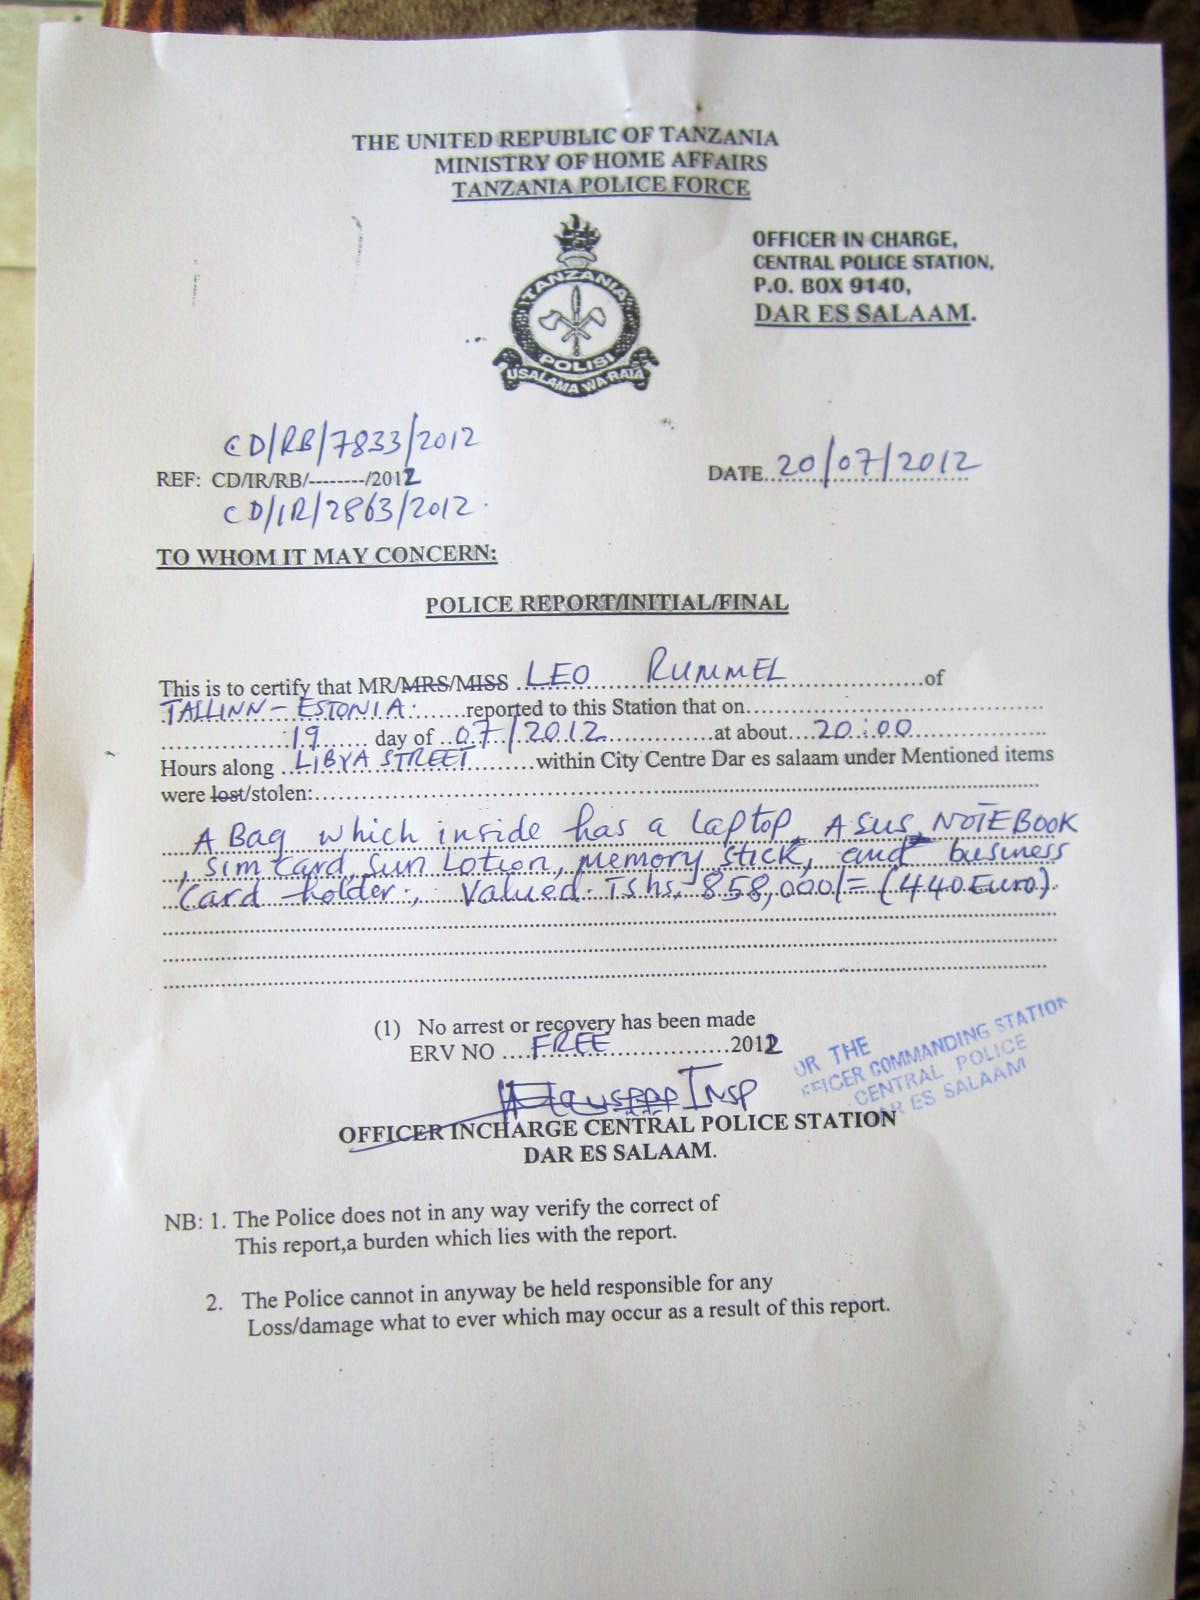 THE UNITED REPUBLIC OF TANZANIA
MINISTRY OF HOME AFFAIRS
TANZANIA POLICE FORCE
TANZANIA
POLISI
USALAMA WA RAIA
OFFICER IN CHARGE,
CENTRAL POLICE STATION,
P.O. BOX 9140,
DAR ES SALAAM.
CD/RB/7833/2012
REF: CD/IR/RB/--------/2012
CD/IR/2863/2012.
DATE..20/07/2012
TO WHOM IT MAY CONCERN:
POLICE REPORT/INITIAL/FINAL
This is to certify that MR/MRS/MISS LEO RUMMEL of
TALLINN - ESTONIA. reported to this Station that on
19 day of 07/2012 at about 20:00
Hours along LIBYA STREET within City Centre Dar es salaam under Mentioned items
were lost/stolen:
A Bag which inside has a laptop, ASUS NOTEBOOK
, Sim card, Sun Lotion, memory stick, and business
Card holder; Valued. Tshs. 858,000/= (440 Euro).
(1) No arrest or recovery has been made
ERV NO FREE 2012
OR THE
FFICER COMMANDING STATION
CENTRAL POLICE
DAR ES SALAAM
Insp
OFFICER INCHARGE CENTRAL POLICE STATION
DAR ES SALAAM.
NB: 1. The Police does not in any way verify the correct of
This report,a burden which lies with the report.
2. The Police cannot in anyway be held responsible for any
Loss/damage what to ever which may occur as a result of this report.